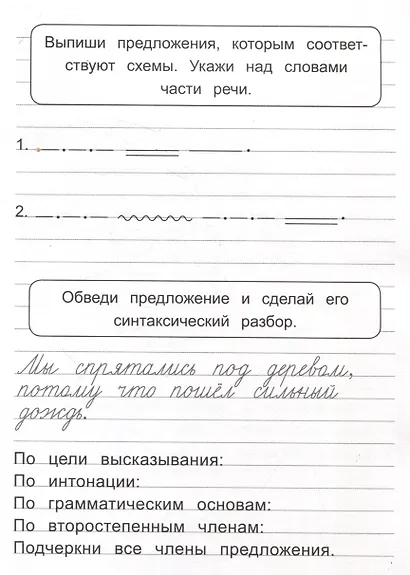 Выпиши предложения, которым соответ-
ствуют схемы. Укажи над словами
части речи.
1.
2.
Обведи предложение и сделай его
синтаксический разбор.
Мы спрятались под деревом,
потому что пошёл сильный
дождь.
По цели высказывания:
По интонации:
По грамматическим основам:
По второстепенным членам:
Подчеркни все члены предложения.